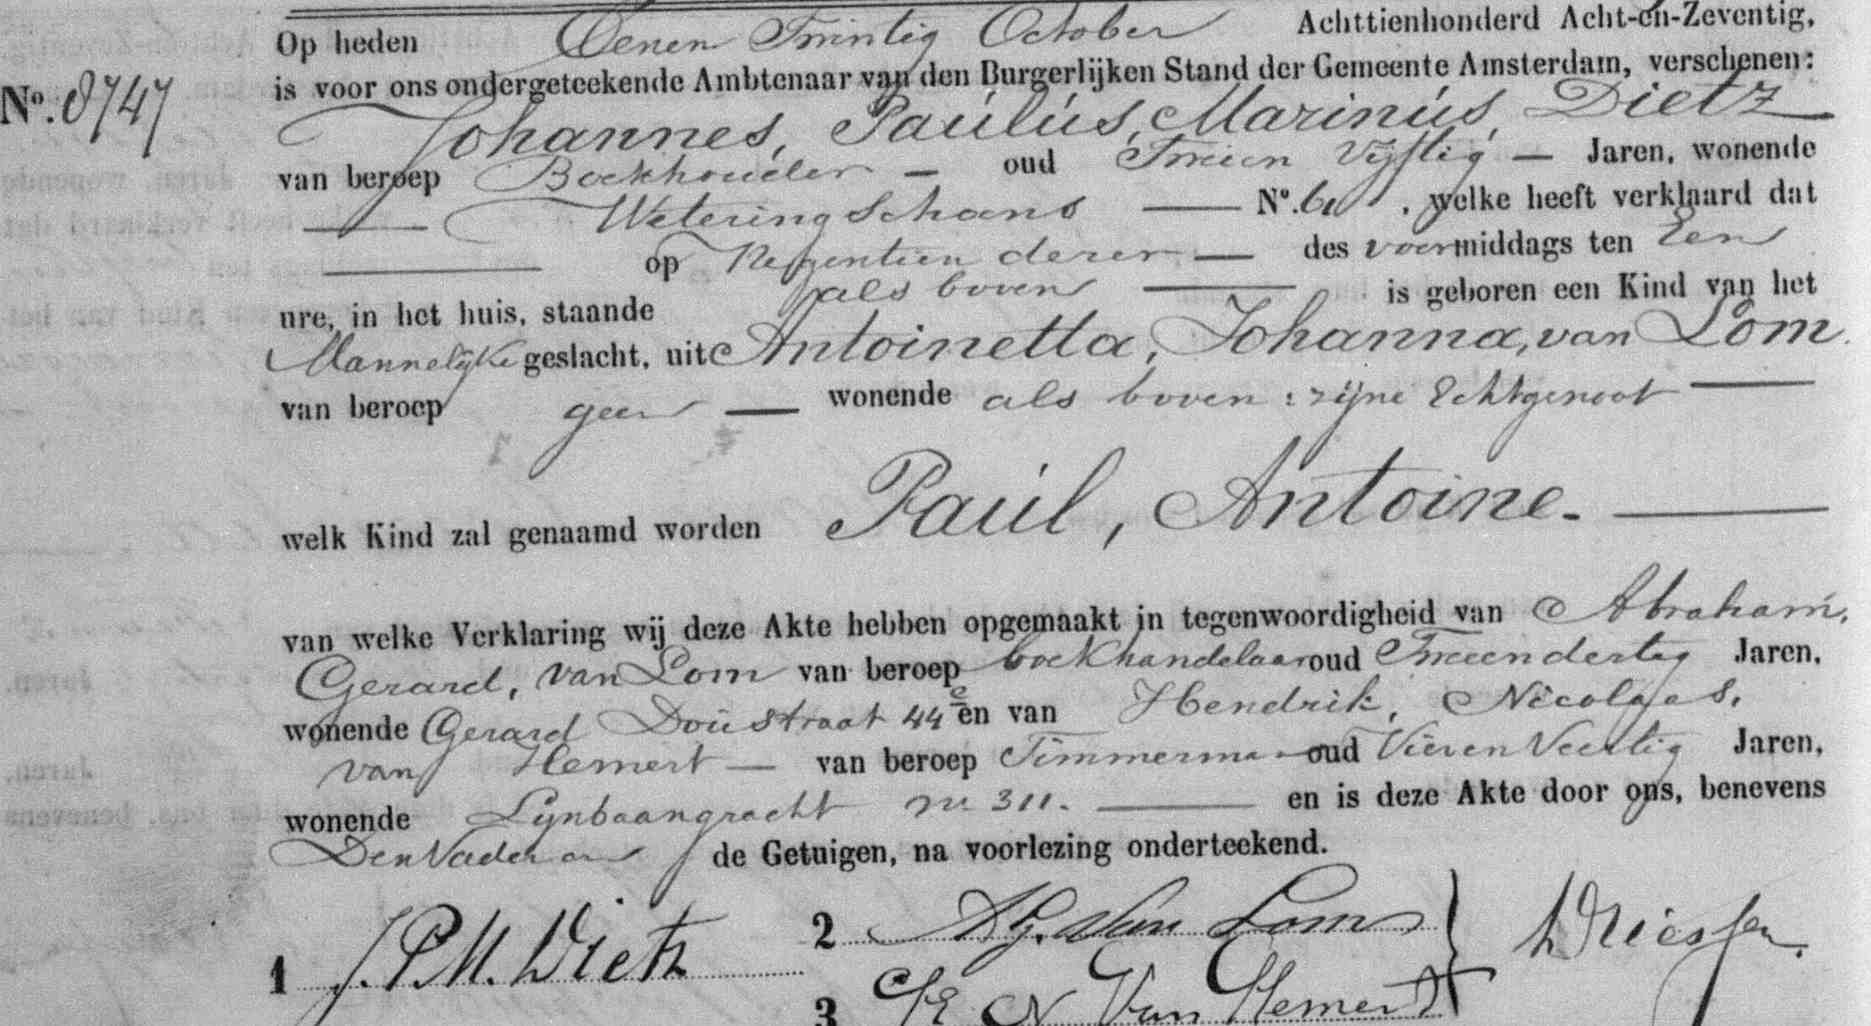 Op heden Eenen Twintig October Achttienhonderd Acht-en-Zeventig,
is voor ons ondergeteekende Ambtenaar van den Burgerlijken Stand der Gemeente Amsterdam, verschenen:
No. 8747
Johannes, Paulus, Marinus, Dietz
van beroep Boekhouder — oud Tweeen Vijftig — Jaren, wonende
— Weteringschans — No. , welke heeft verklaard dat
— op Negentien dezer — des voormiddags ten Een
ure, in het huis, staande als boven — is geboren een Kind van het
Mannelijke geslacht, uit Antoinetta, Johanna, van Lom
van beroep geen — wonende als boven : zijne Echtgenoot —
welk Kind zal genaamd worden Paul, Antoine. —
van welke Verklaring wij deze Akte hebben opgemaakt in tegenwoordigheid van Abraham,
Gerard, van Lom van beroep boekhandelaar oud Tweeendertig Jaren,
wonende Gerard Doustraat 44 en van Hendrik, Nicolaas,
van Hemert — van beroep Timmerman oud Vieren Veertig Jaren,
wonende Lijnbaangracht no 311. — en is deze Akte door ons, benevens
Den Vader en de Getuigen, na voorlezing onderteekend.
1 J. P. M. Dietz
2 A. G. van Lom
3 H. N. van Hemert